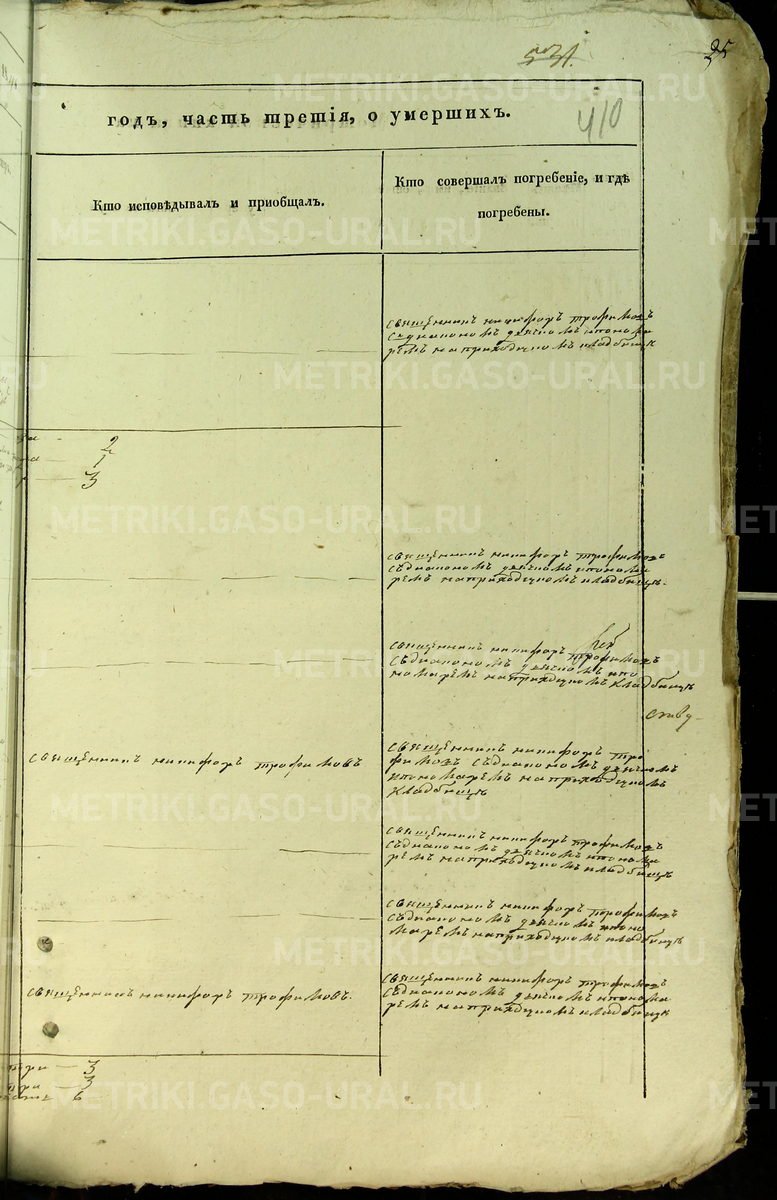 531.
25
410
годъ, часть третія, о умершихъ.
Кто исповѣдывалъ и приобщалъ.
Кто совершалъ погребеніе, и гдѣ
погребены.
METRIKI.GASO-URAL.RU
священникъ никифоръ трофимовъ
съдиакономъ дьячкомъ ипонома
ремъ наприходскомъ кладбищѣ
2
1
3
METRIKI.GASO-URAL.RU
священникъ никифоръ трофимовъ
съдиакономъ дьячкомъ ипонома
ремъ наприходскомъ кладбищѣ.
священникъ никифоръ трофимовъ
съдиакономъ дьячкомъ ипо
номаремъ наприходскомъ кладбищѣ
священникъ никифоръ трофимовъ
священникъ никифоръ тро
фимовъ съдиакономъ дьячкомъ
ипономаремъ наприходскомъ
кладбищѣ
METRIKI.GASO-URAL.RU
священникъ никифоръ трофимовъ
съдиакономъ дьячкомъ ипонома
ремъ наприходскомъ кладбищѣ
священникъ никифоръ трофимовъ
съдиакономъ дьячкомъ ипоно
маремъ наприходскомъ кладбищѣ
священникъ никифоръ трофимовъ.
священникъ никифоръ трофимовъ
съдиакономъ дьячкомъ ипонома
ремъ наприходскомъ кладбищѣ
три — 3
три — 3
6
METRIKI.GASO-URAL.RU